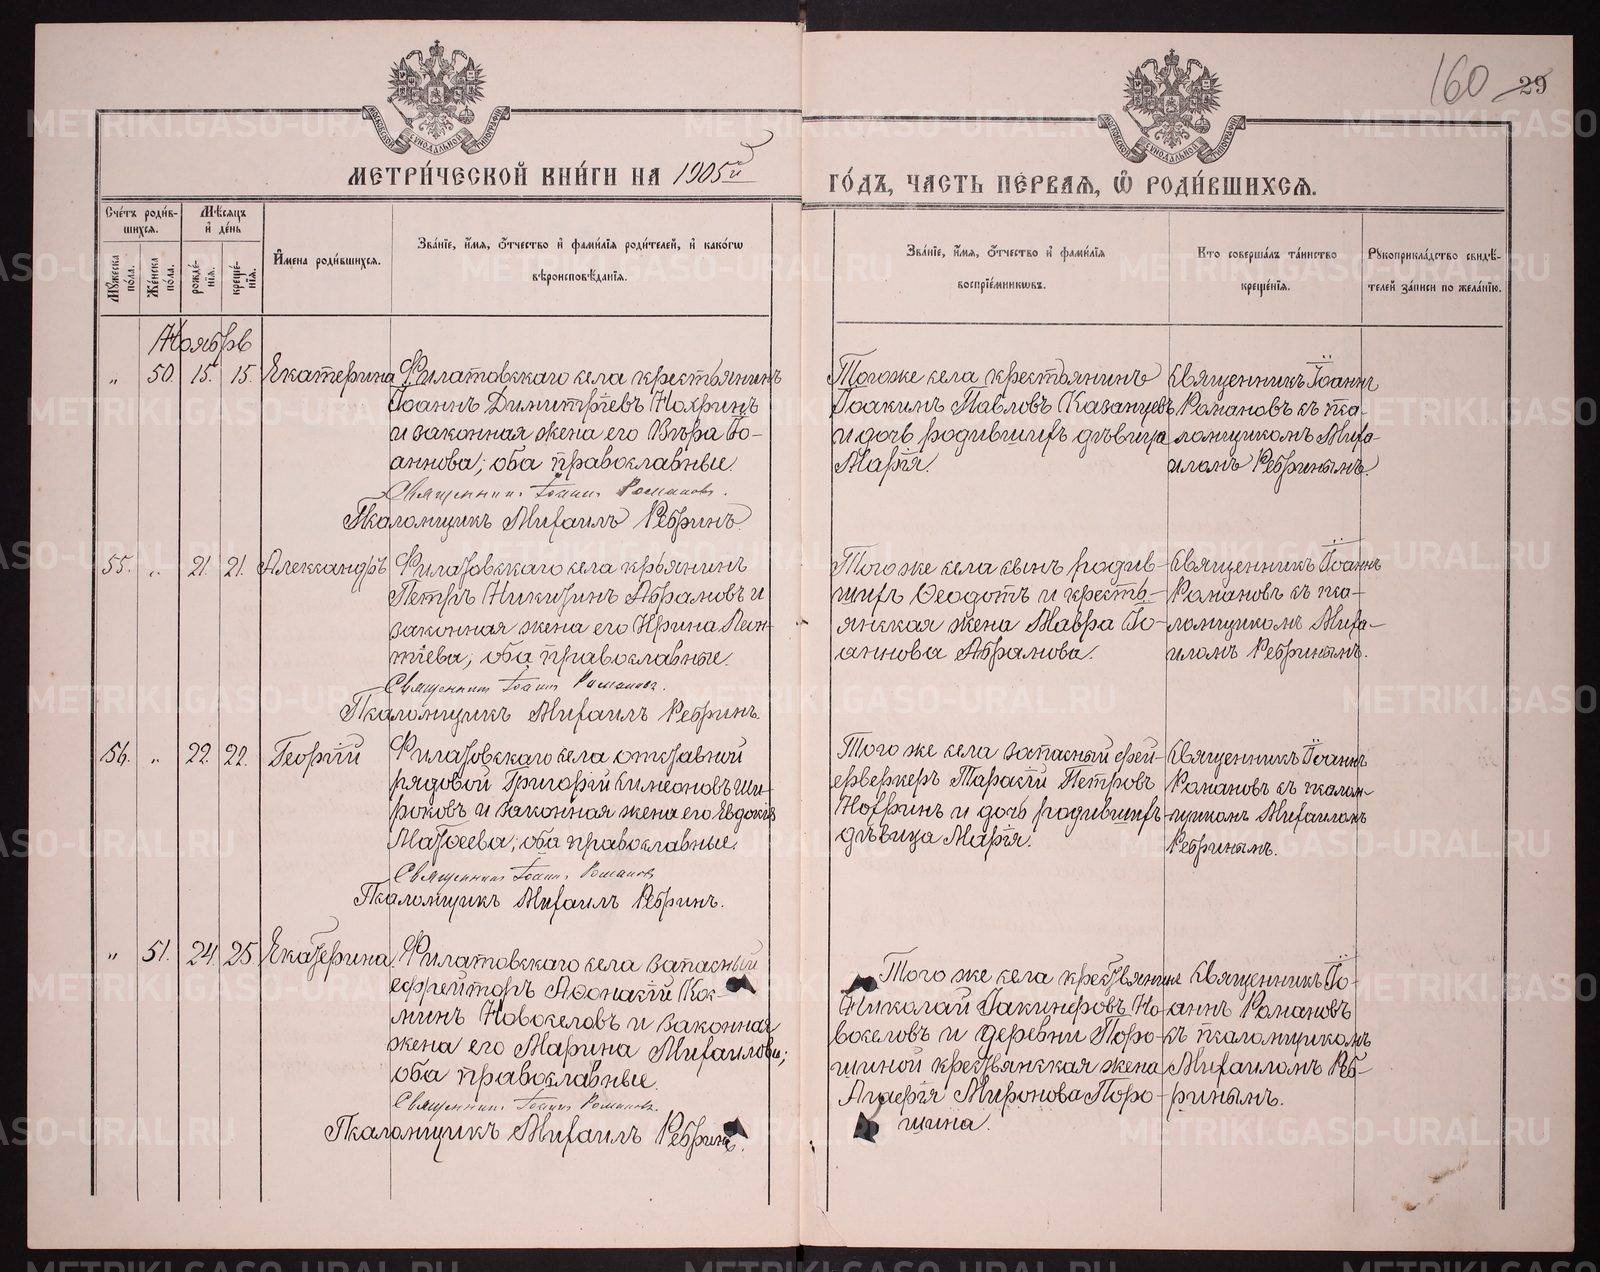 160 29
МЕТРИ́ЧЕСКОЙ КНИ́ГИ НА 1905й
ГО́ДЪ, ЧАСТЬ ПЕ́РВАЯ, Ѽ РОДИ́ВШИХСЯ.
Сче́тъ роди́в-
шихся.
Мꙋ́жеска по́ла.
Же́нска по́ла.
Мѣ́сяцъ и҆ де́нь
рожде́-
нїя.
креще́-
нїя.
И҆мена роди́вшихся.
Зва́нїе, и҆́мя, ѻ҆́тчество и҆ фами́лїя роди́телей, и҆ како́гѡ
вѣроисповѣ́данїя.
Зва́нїе, и҆́мя, ѻ҆́тчество и҆ фами́лїя
воспрїе́мникѡвъ.
Кто соверша́лъ та́инство
креще́нїя.
Рꙋкоприкла́дство свидѣ́-
телей за́писи по жела́нїю.
Ноябрь
„ 50. 15. 15. Екатерина
Филатовскаго села крестьянинъ
Іоаннъ Димитріевъ Нохринъ
и законная жена его Вѣра Іо-
аннова; оба православные.
Священникъ Іоаннъ Романовъ.
Псаломщикъ Михаилъ Ребринъ.
Того же села крестьянинъ
Іоакимъ Павловъ Казанцевъ
и дочь родившихъ дѣвица
Марія.
Священникъ Іоаннъ
Романовъ съ пса-
ломщикомъ Миха-
иломъ Ребринымъ.
55. „ 21. 21. Александръ
Филатовскаго села кр-ьянинъ
Петръ Никитинъ Абрамовъ и
законная жена его Ирина Леон-
тіева; оба православные.
Священникъ Іоаннъ Романовъ.
Псаломщикъ Михаилъ Ребринъ.
Того же села сынъ родив-
шихъ Ѳеодотъ и кресть-
янская жена Мавра Іо-
аннова Абрамова.
Священникъ Іоаннъ
Романовъ съ пса-
ломщикомъ Миха-
иломъ Ребринымъ.
56. „ 22. 22. Георгій
Филатовскаго села отставной
рядовой Григорій Симеоновъ Ши-
роковъ и законная жена его Евдокія
Матѳеева; оба православные.
Священникъ Іоаннъ Романовъ
Псаломщикъ Михаилъ Ребринъ.
Того же села запасный фей-
ерверкеръ Тарасій Петровъ
Нохринъ и дочь родившихъ
дѣвица Марія.
Священникъ Іоаннъ
Романовъ съ псалом-
щикомъ Михаиломъ
Ребринымъ.
„ 51. 24. 25. Екатерина.
Филатовскаго села запасный
ефрейторъ Аѳонасій Кос-
минъ Новоселовъ и законная
жена его Марина Михаилова;
оба православные.
Священникъ Іоаннъ Романовъ.
Псаломщикъ Михаилъ Ребринъ.
Того же села крестьянинъ
Николай Іакинѳовъ Но-
воселовъ и деревни Поро-
шиной крестьянская жена
Мironова Поро-
шина.
Священникъ Іо-
аннъ Романовъ
съ псаломщикомъ
Михаиломъ Реб-
ринымъ.
METRIKI.GASO-URAL.RU